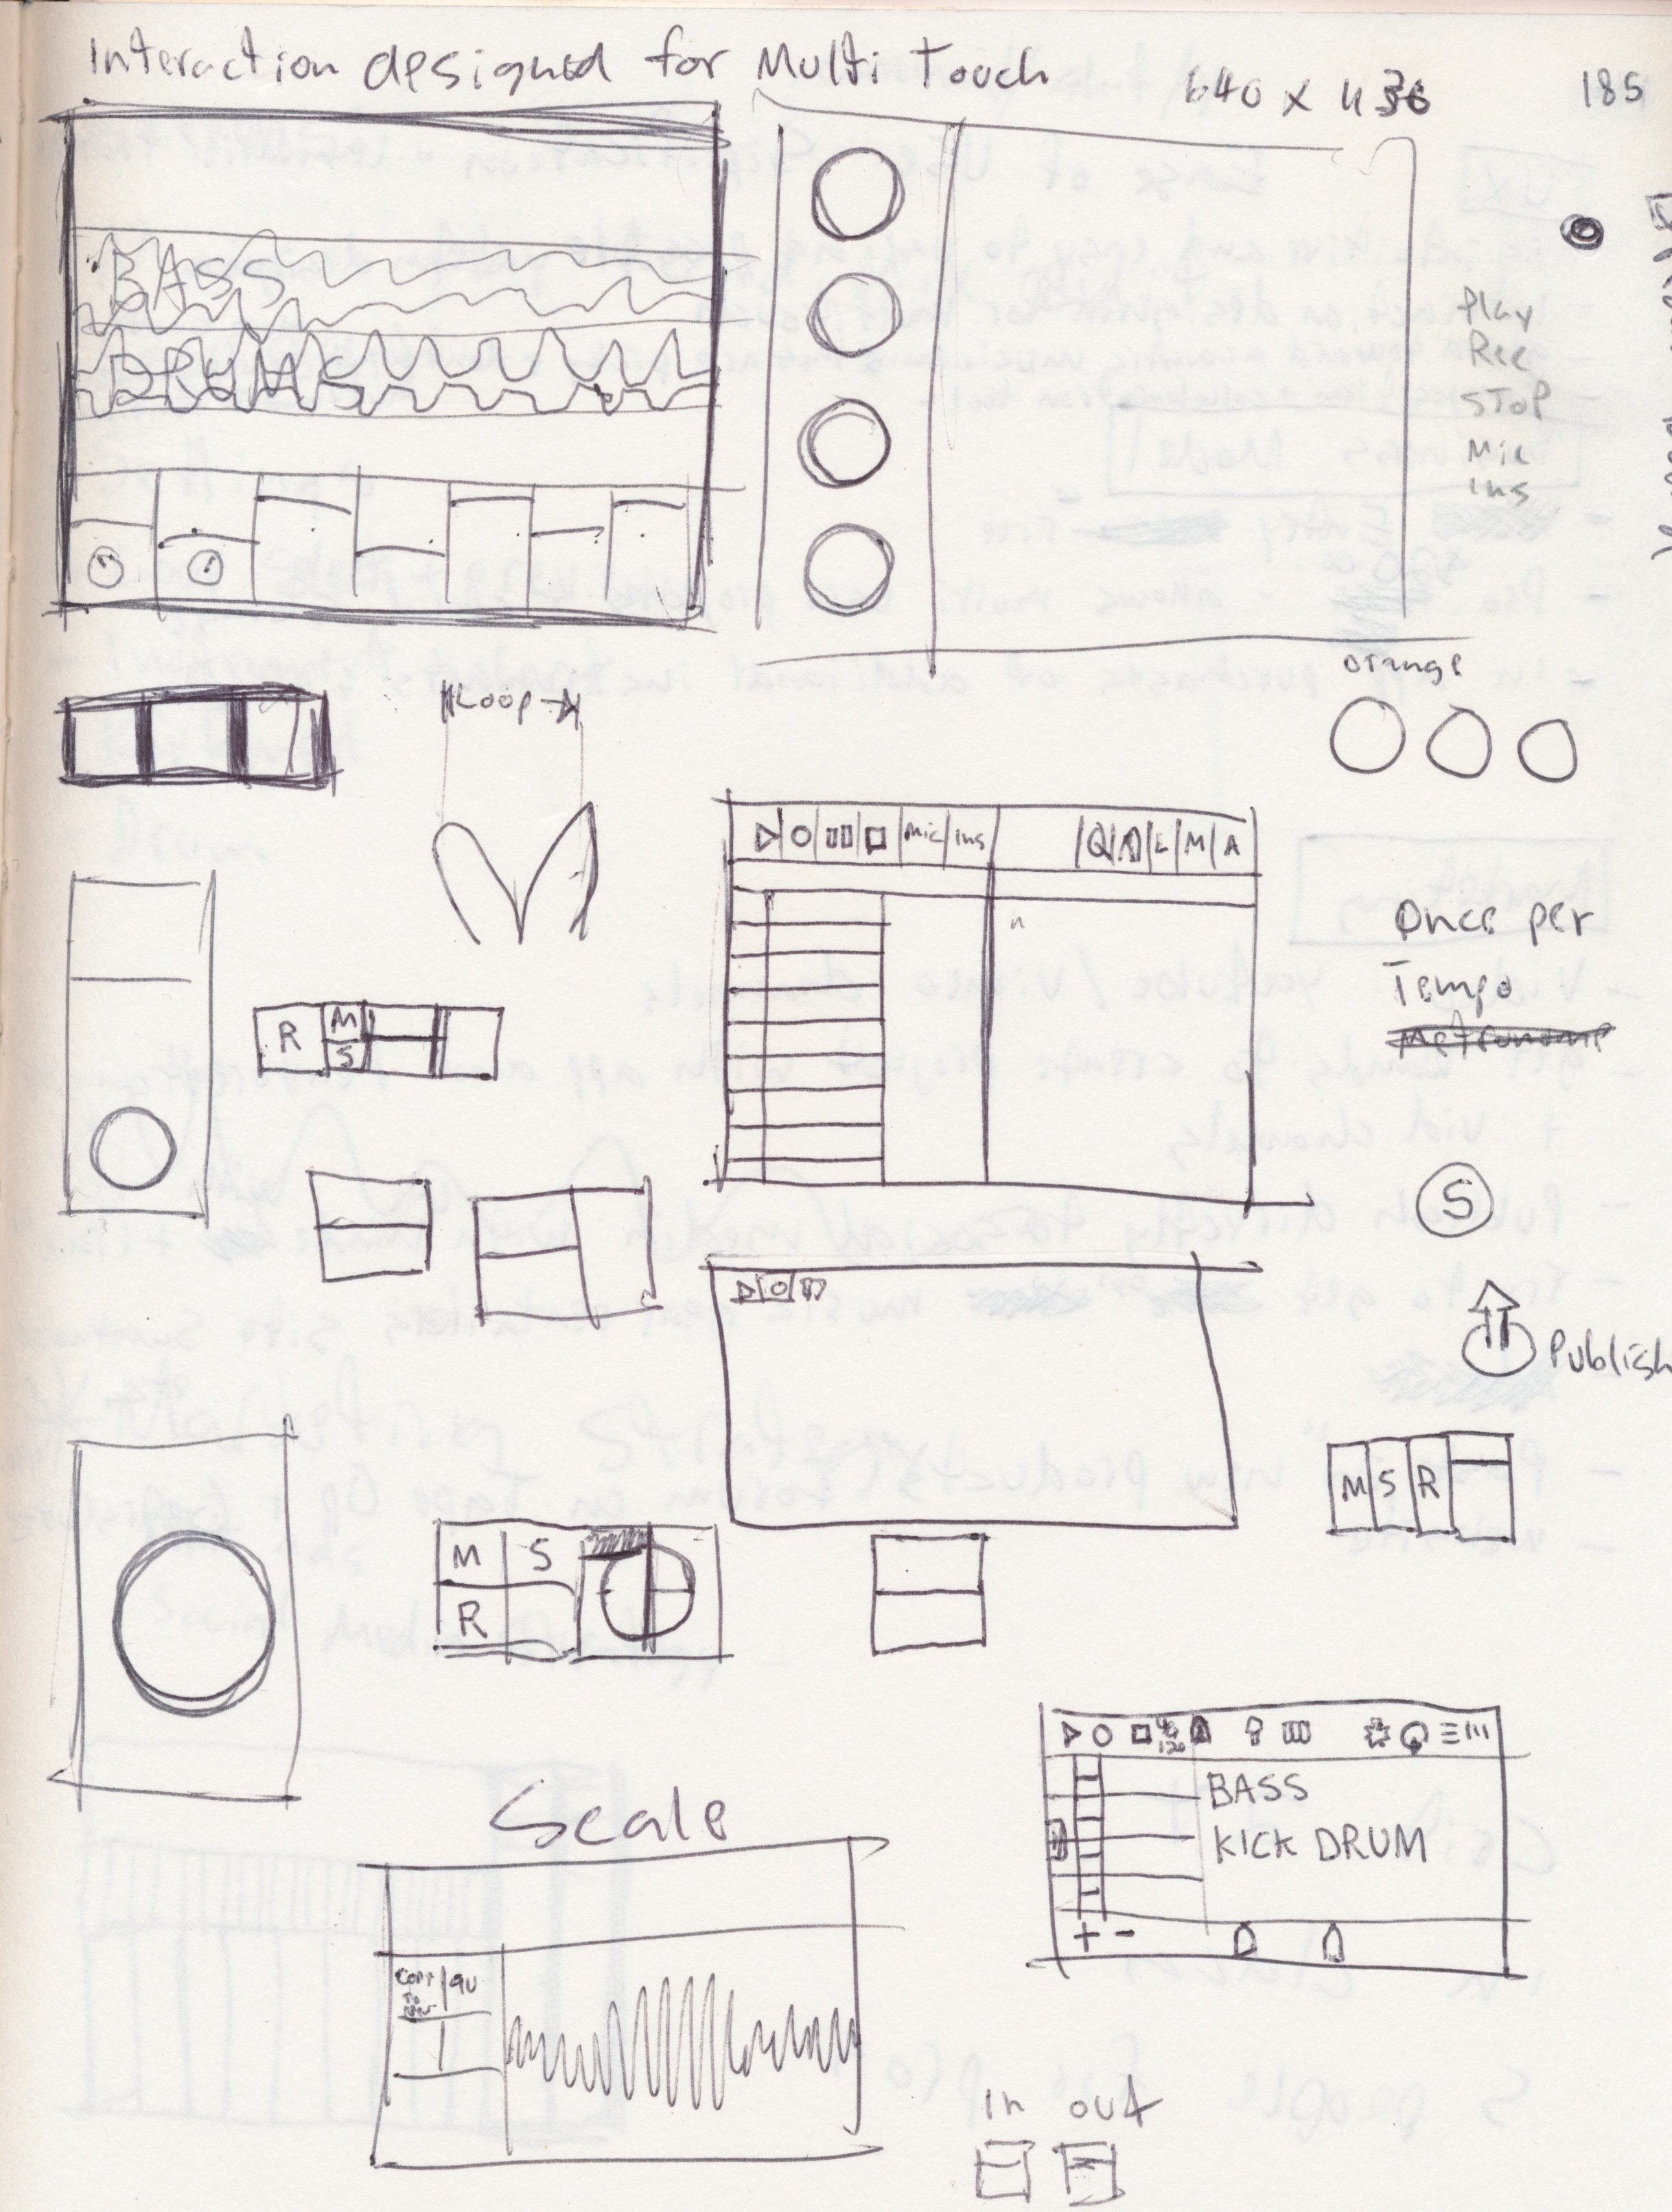 Interaction designed for Multi Touch
640 x 436
185
BASS
DRUMS
Play
Rec
STOP
Mic
ins
orange
Loop
Mic ins
L M A
Once per
Tempo
Metronome
R M
S
S
Publish
M S R
M S
R
120
BASS
KICK DRUM
+ -
Scale
COPY
To
in out